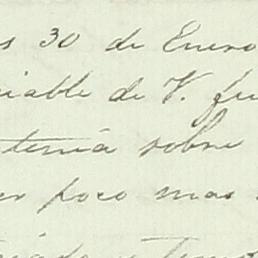 s 30 de Enero
iable de V. fu
tenia sobre
er poco mas